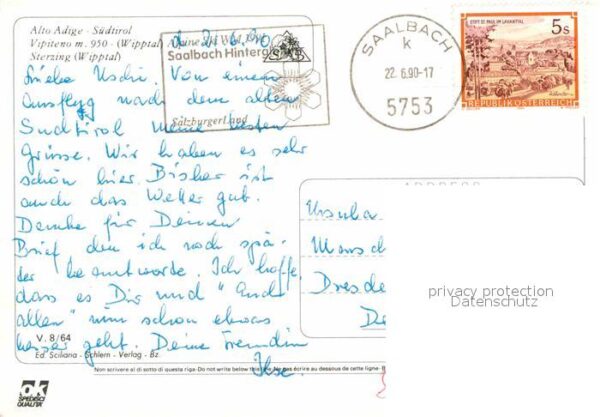 Alto Adige - Südtirol
Vipiteno m. 950 - (Wipptal)
Sterzing (Wipptal)
Alpine Ski WM 1991
Saalbach Hinterg
SalzburgerLand
SAALBACH
k
22.6.90-17
5753
STIFT ST. PAUL IM LAVANTTAL
5s
REPUBLIK ÖSTERREICH
d. 21.6.90
Liebe Uschi. Von einem
Ausflug nach dem alten
Südtirol meine besten
Grüsse. Wir haben es sehr
schön hier. Bisher ist
auch das Wetter gut.
Danke für Deinen
Brief den ich noch spä-
ter beantworte. Ich hoffe
dass es Dir und "Euch
allen" nun schon etwas
besser geht. Deine Freundin
Ilse.
ADDRESS
Ursula
Dresde
De
privacy protection
Datenschutz
V. 8/64
Ed. Sciliana - Schlern - Verlag - Bz.
Non scrivere al di sotto di questa riga - Do not write below this line - Ne pas écrire au dessous de cette ligne - B
OK
SPEDISCI
QUALITÀ